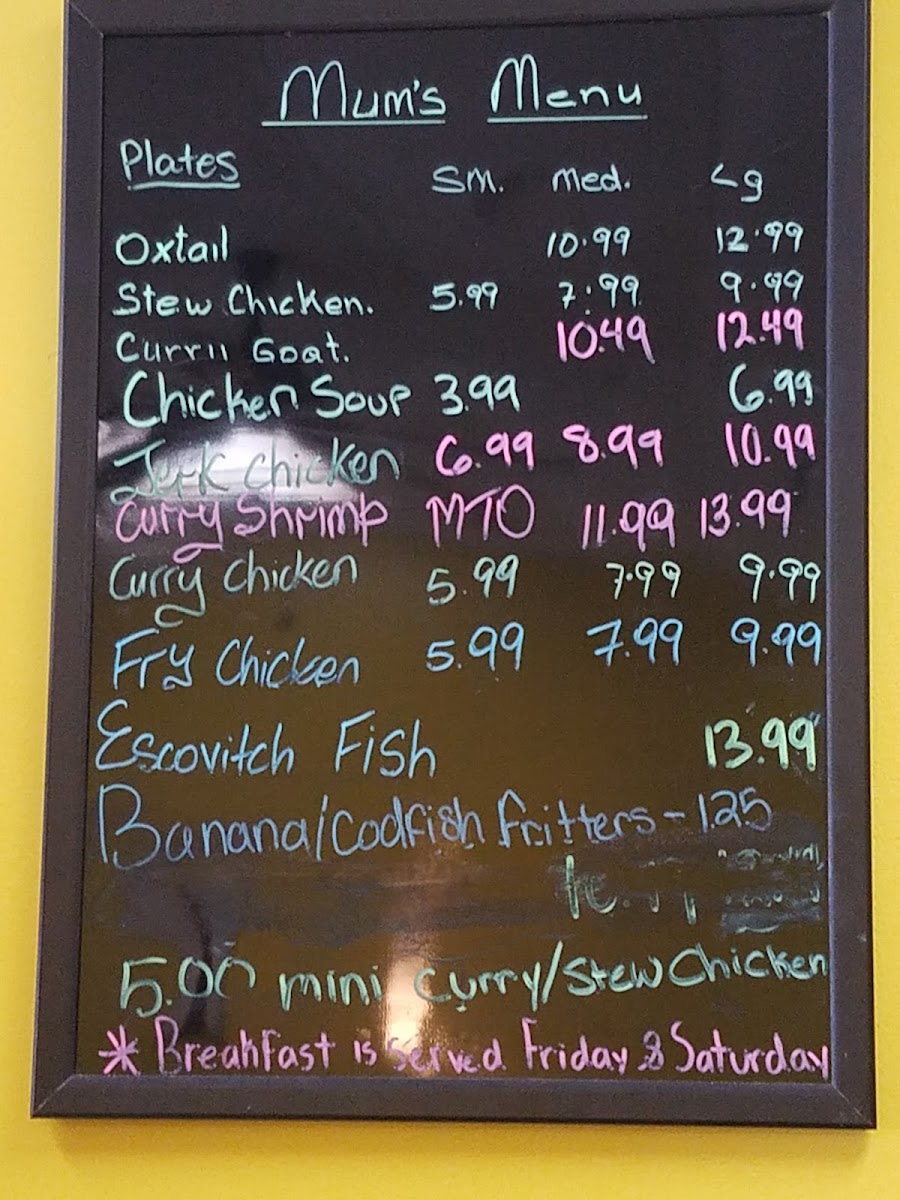 Mum's Menu
Plates SM. Med. Lg
Oxtail 10.99 12.99
Stew Chicken. 5.99 7.99 9.99
Currii Goat. 10.49 12.49
Chicken Soup 3.99 6.99
Jerk Chicken 6.99 8.99 10.99
Curry Shrimp MTO 11.99 13.99
Curry Chicken 5.99 7.99 9.99
Fry Chicken 5.99 7.99 9.99
Escovitch Fish 13.99
Banana/Codfish fritters - 1.25
5.00 mini Curry/Stew Chicken
* Breakfast is Served Friday & Saturday